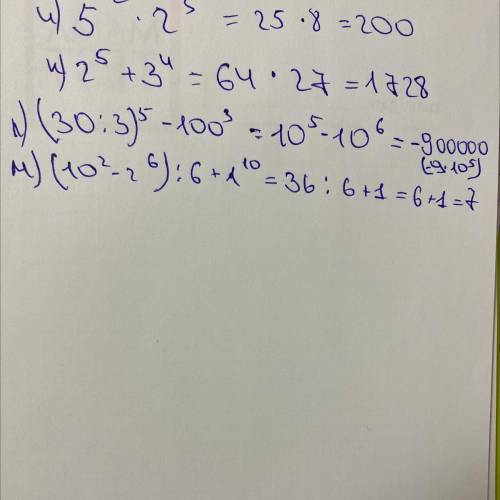 и) 5² · 2³ = 25 · 8 = 200
к) 2⁵ + 3⁴ = 64 · 27 = 1728
л) (30:3)⁵ - 100³ = 10⁵ - 10⁶ = -900000
(-9·10⁵)
м) (10² - 2⁶) : 6 + 1¹⁰ = 36 : 6 + 1 = 6 + 1 = 7